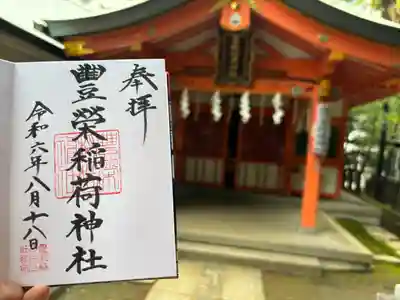 奉拝
豐榮稲荷神社
令和六年八月十八日